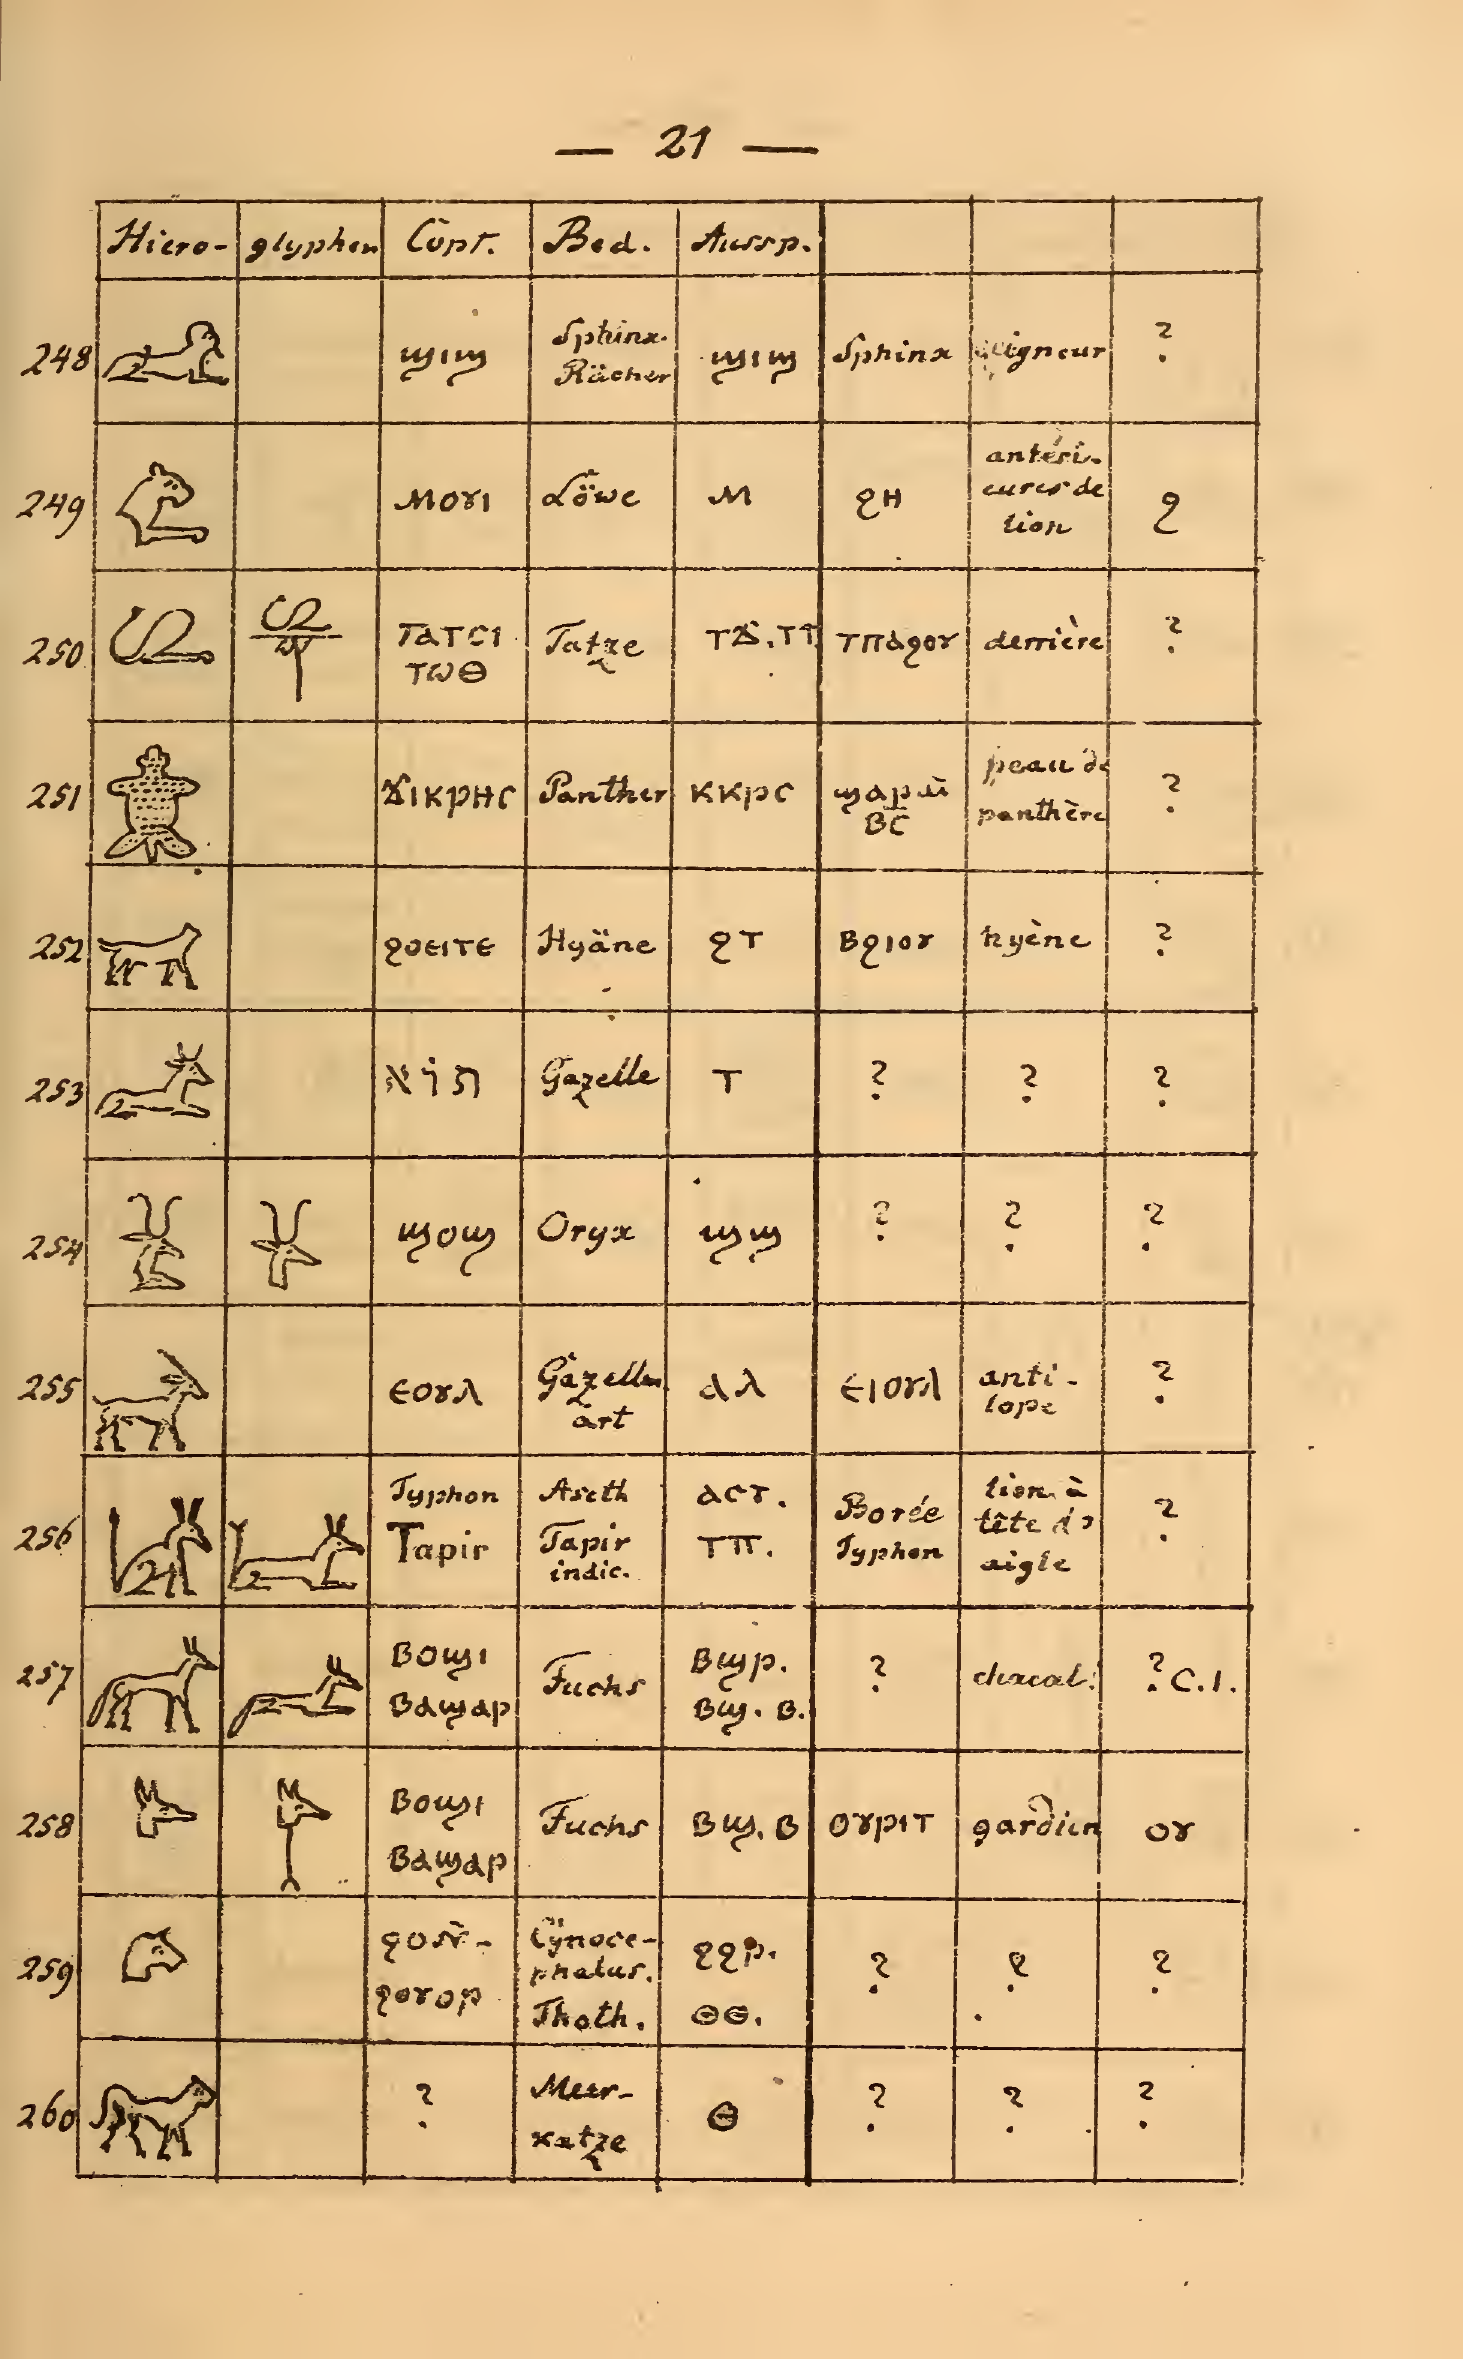 — 21 —
Hiero- glyphen Copt. Bed. Aussp.
248 ϣιϣ Sphinx. Rächer ϣιϣ Sphinx seigneur ?
249 ⲙⲟⲩⲓ Löwe ⲙ ϩⲏ antéri- eures de lion ϩ
250 ⲧⲁⲧⲥⲓ ⲧⲱⲑ Tatze ⲡⲁϩⲟⲩ derrière ?
251 Panther ⲕⲕⲣⲥ peau de panthère ?
252 ϩⲟⲉⲓⲧⲉ Hyäne ϩⲧ ⲃϩⲓⲟⲩ hyène ?
253 Gazelle ⲧ ? ? ?
254 ϣⲟϣ Oryx ϣϣ ? ? ?
255 ⲉⲟⲩⲗ Gazellen art ⲁⲗ ⲉⲓⲟⲩⲗ anti- lope ?
256 Typhon Tapir Aseth Tapir indic. ⲁⲥⲧ. ⲧⲡ. Borée Typhon lion à tête d' aigle ?
257 ⲃⲟϣⲓ ⲃⲁϣⲁⲣ Fuchs ⲃϣⲣ. ⲃϣ. ⲃ. ? chacal ? C.1.
258 ⲃⲟϣⲓ ⲃⲁϣⲁⲣ Fuchs ⲃϣ. ⲃ ⲟⲩⲣⲓⲧ gardien ⲟⲩ
259 ϩⲟⲩⲟⲣ Cynoce- phalus. Thoth. ϩϩⲣ. ⲑⲑ. ? ? ?
260 ? Meer- katze ⲑ ? ? ?